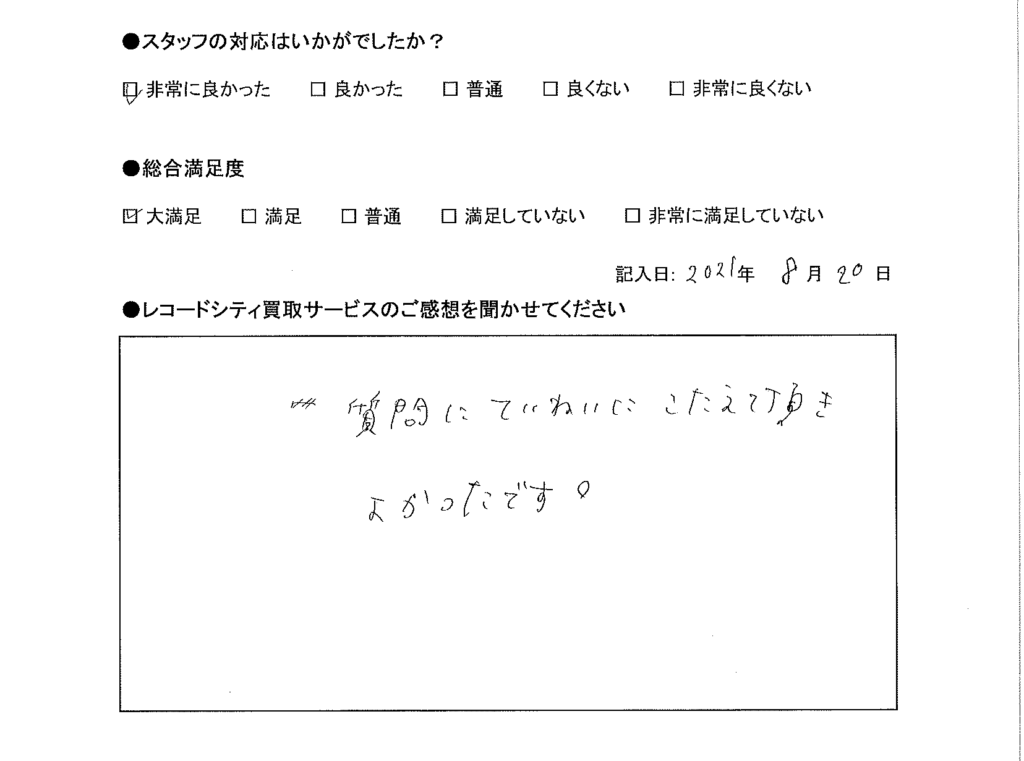 ●スタッフの対応はいかがでしたか？
☑ 非常に良かった □ 良かった □ 普通 □ 良くない □ 非常に良くない
●総合満足度
☑ 大満足 □ 満足 □ 普通 □ 満足していない □ 非常に満足していない
記入日: 2021年 8月 20日
●レコードシティ買取サービスのご感想を聞かせてください
質問にていねいにこたえて頂き
よかったです。